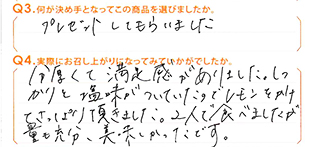 Q3.何が決め手となってこの商品を選びましたか。
プレゼントしてもらいました
Q4.実際にお召し上がりになってみていかがでしたか。
分厚くて満足感がありました。しっ
かりと塩味がついていたのでレモンをかけ
てさっぱり頂きました。2人で食べましたが
量も充分、美味しかったです。